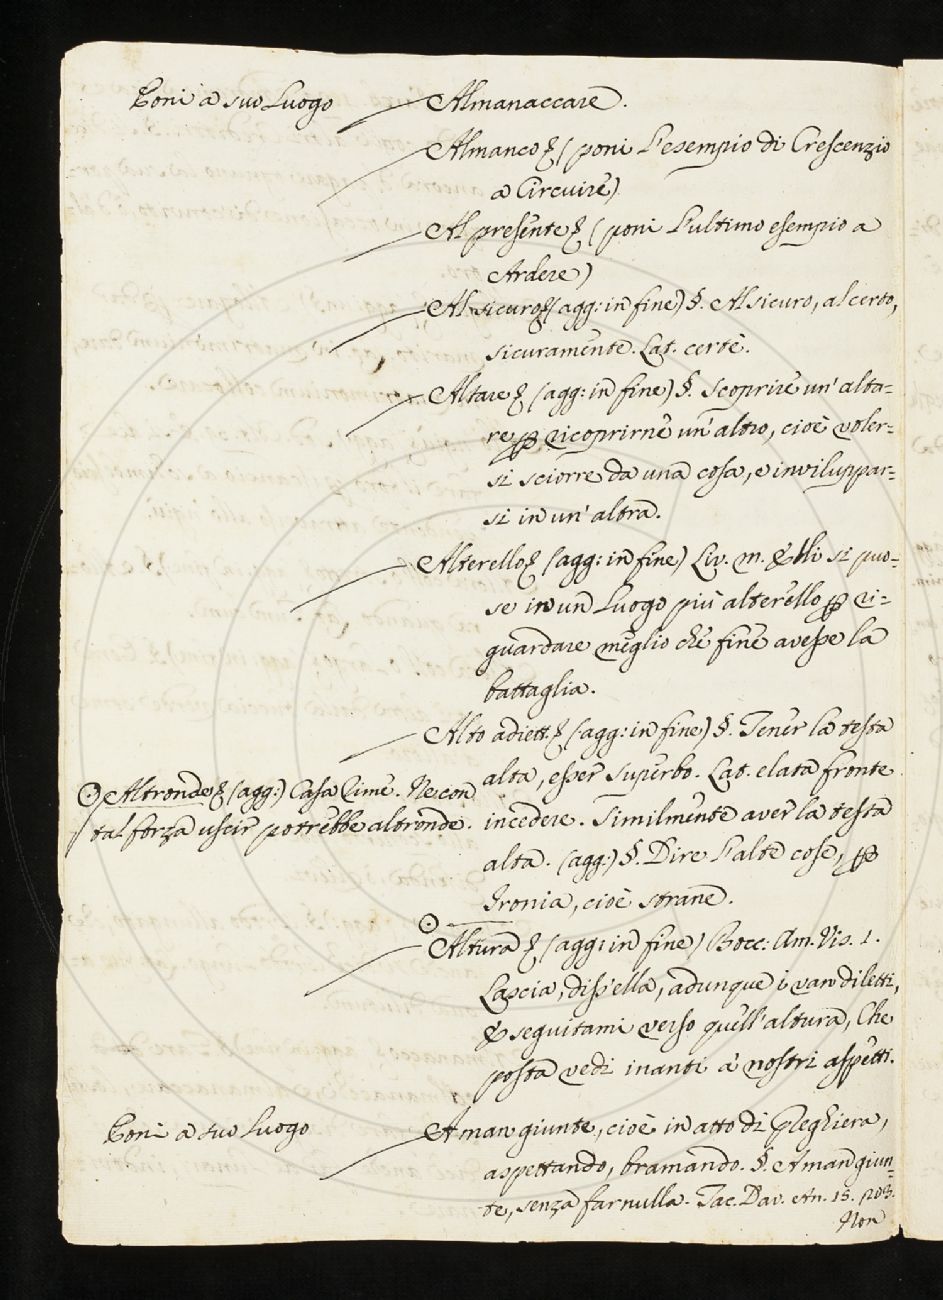 Poni a suo Luogo
Almanaccare.
Almanco (poni l'esempio di Crescenzio
a Circuire)
Al presente (poni l'ultimo esempio a
Ardere)
Al sicuro (agg: in fine) §. Al sicuro, al certo,
sicuramente. Lat. certè.
Altare (agg: in fine) §. Scoprire un' alta=
re per ricoprirne un' altro, cioè voler=
si sciorre da una cosa, e inviluppar=
si in un' altra.
Alterello (agg: in fine) Liv. m. Egli si puo=
se in un Luogo più alterello per ri=
guardare meglio che fine avesse la
battaglia.
Alto adiett. (agg: in fine) §. Tener la testa
alta, esser superbo. Lat. elata fronte
incedere. Similmente aver la testa
alta. (agg:) §. Dire l'alte cose, per
Ironia, cioè strane.
⊙ Altronde (agg:) Casa Rime. Ne con
tal forza uscir potrebbe altronde.
⊙
Altura (agg: in fine) Bocc: Am. Vis. 1.
Lascia, diss'ella, adunque i van diletti,
E seguitami verso quell' altura, Che
posta vedi inanti a' nostri aspetti.
Poni a suo Luogo
A man giunte, cioè in atto di Pleghiera,
aspettando, bramando. §. A man giun=
te, senza far nulla. Tac. Dav. An. 15. 203.
Non